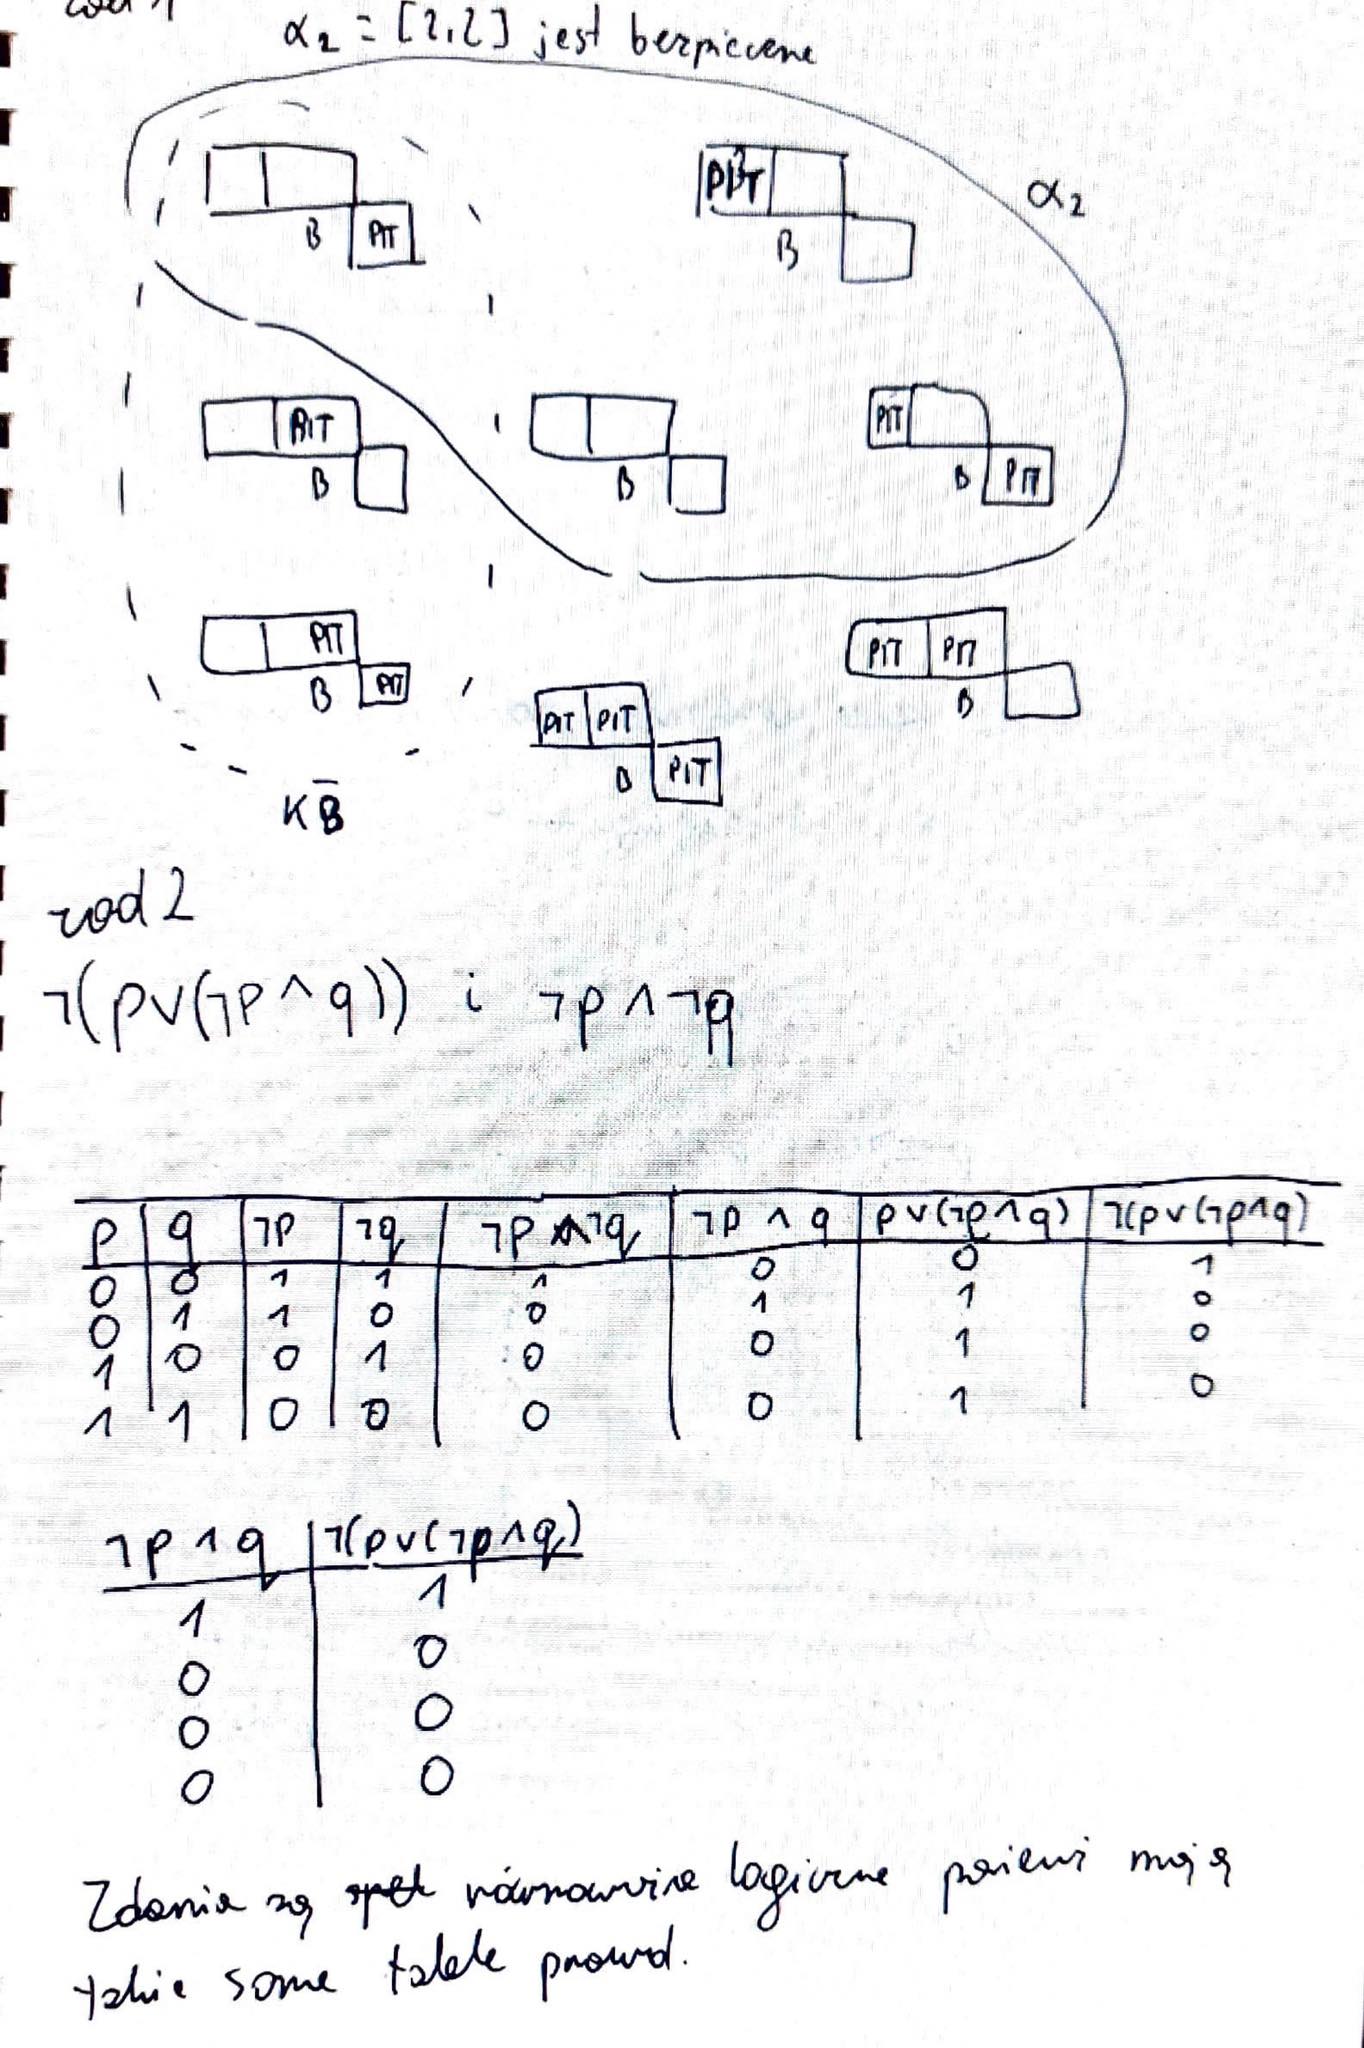 zad 1
α₂ = [2,2] jest bezpieczne
PIT
B
PIT
B
α₂
PIT
B
B
PIT
B
PIT
PIT
B
PIT
PIT PIT
B
PIT
PIT PIT
B
KB̅
zad 2
¬(p∨(¬p∧q)) i ¬p∧¬q
p q ¬p ¬q ¬p∧¬q ¬p∧q p∨(¬p∧q) ¬(p∨(¬p∧q)
0 0 1 1 1 0 0 1
0 1 1 0 0 1 1 0
1 0 0 1 0 0 1 0
1 1 0 0 0 0 1 0
¬p∧q ¬(p∨(¬p∧q)
1 1
0 0
0 0
0 0
Zdania są równoważne logiczne mają
takie same prawd.